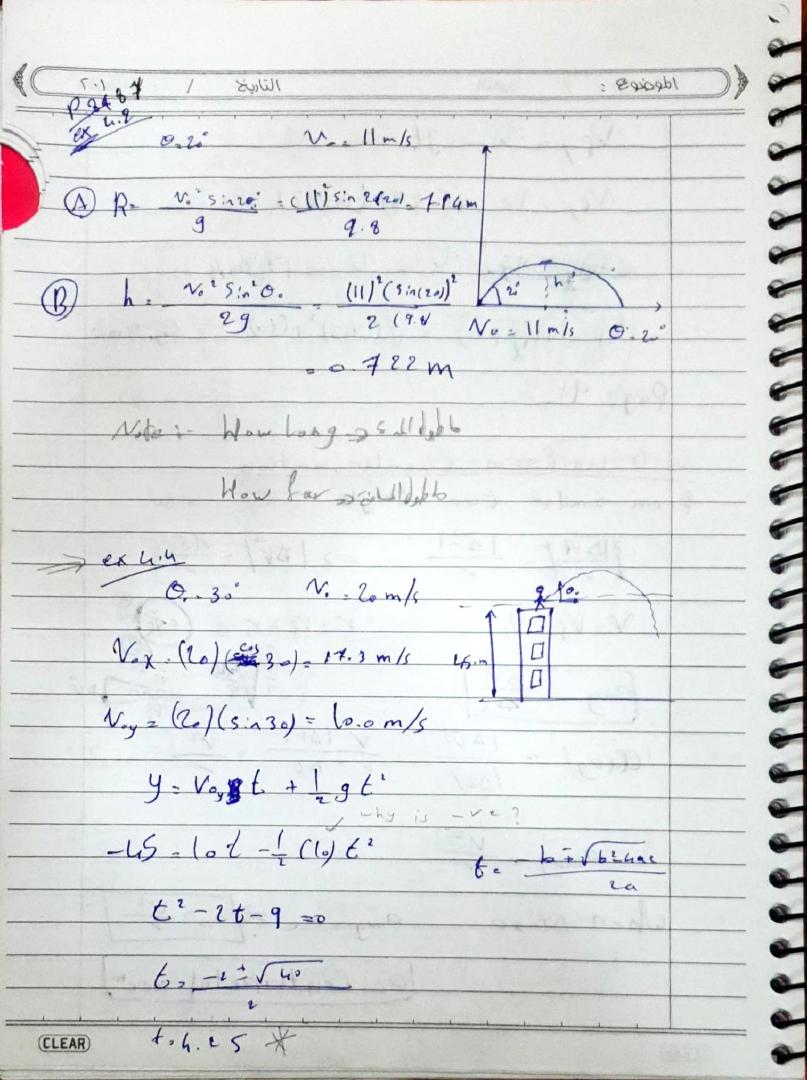 الموضوع :
التاريخ / ٢٠١
P 87
ex 4.2
θ = 20° V₀ = 11 m/s
Ⓐ R = V₀² sin2θ₀ / g = (11)² sin 2(20) / 9.8 = 7.94 m
h
20°
Ⓑ h = V₀² sin²θ₀ / 2g = (11)² (sin(20))² / 2 (9.8
V₀ = 11 m/s θ = 20°
= 0.722 m
Note :- How long
How far
⇒ ex 4.4
θ₀ = 30° V₀ = 20 m/s
θ₀
V₀x = (20) (cos 30) = 17.3 m/s
45 m
V₀y = (20)(sin30) = 10.0 m/s
y = V₀y t + ½ g t²
why is -ve ?
-45 = 10t - ½ (10) t²
t = -b ∓ √b²-4ac / 2a
t² - 2t - 9 = 0
t = -2 ± √40 / 2
CLEAR
t = 4.2 S *